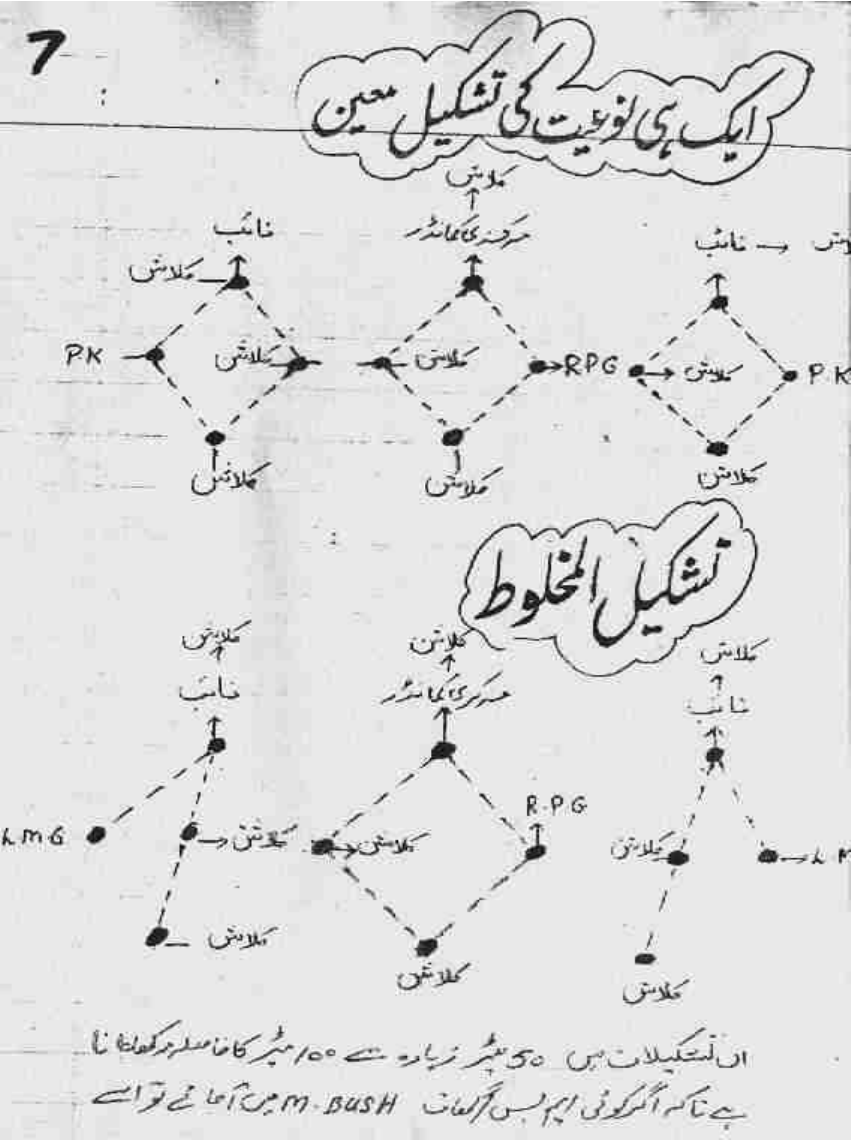 7
ایک ہی نوعیت کی تشکیل معین
کلاشن
نائب
مرکزی کمانڈر
نائب
کلاشن
P.K
کلاشن
کلاشن
RPG
کلاشن
P.K
کلاشن
کلاشن
کلاشن
تشکیل المخلوط
کلاشن
کلاشن
کلاشن
نائب
مرکزی کمانڈر
نائب
R.P.G
L M G
کلاشن
کلاشن
کلاشن
کلاشن
کلاشن
کلاشن
ان تشکیلات میں 50 میٹر زیادہ سے 100 میٹر کا فاصلہ رکھا جاتا
ہے تاکہ اگر کوئی ایم بس M. BUSH میں آ جائے تو اسے